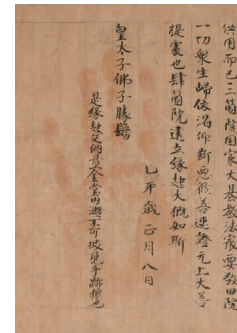 供用而已三箇院國家大基教法最要敬田院
一切衆生歸依渴仰斷惡修善速證无上大菩
提處也肆箇院建立緣起大概如斯
乙卯歲正月八日
皇太子佛子勝鬘
是緣起文納置金堂内濫不可披見手跡狼也